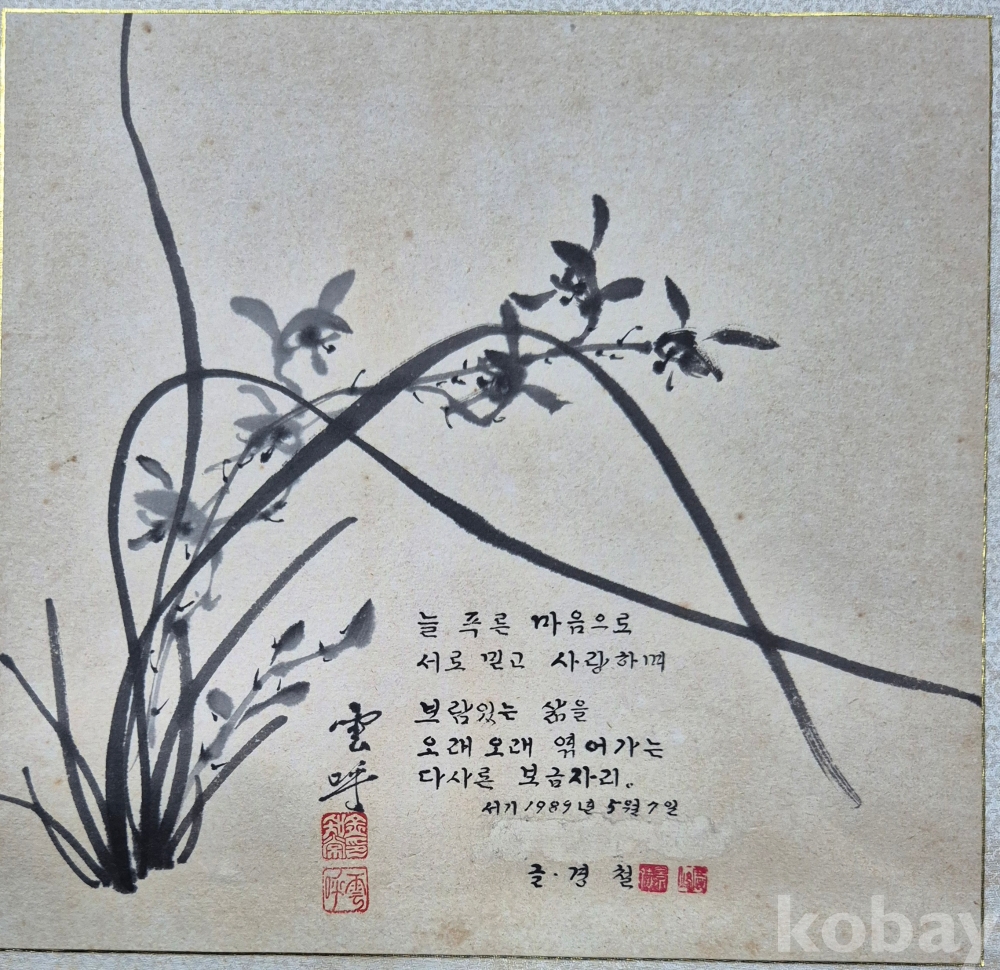 늘 푸른 마음으로
서로 믿고 사랑하며
보람있는 삶을
오래오래 엮어가는
다사론 보금자리.
서기 1989년 5월 7일
글·경철
雲呼
雲呼
kobay